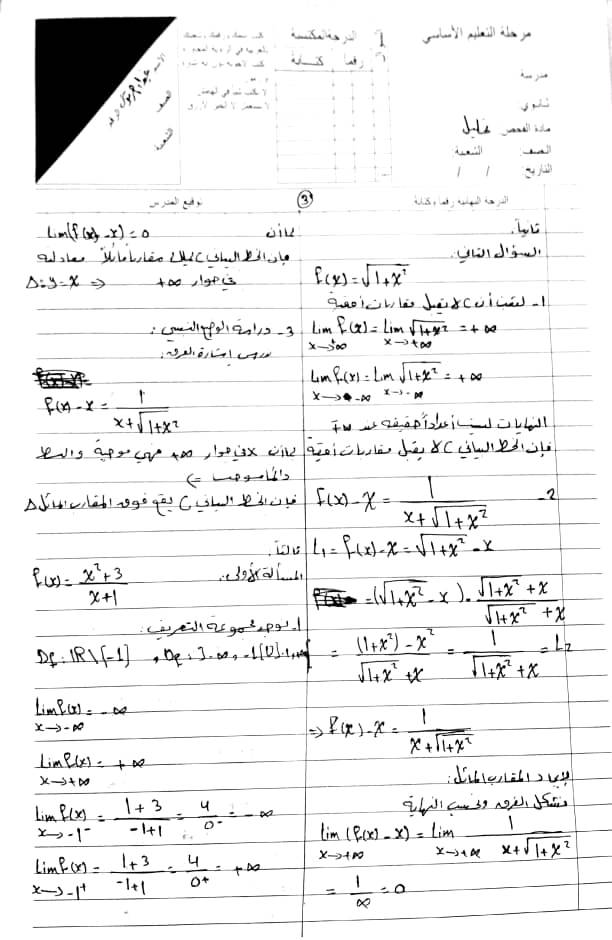 مرحلة التعليم الأساسي
مدرسة
ثانوي
مادة الفحص
الصف الشعبة
التاريخ / /
الدرجة المكتسبة
رقما كتابة
الاسم
الصف
الشعبة
الدرجة النهائية رقما وكتابة
3
توقيع المدرس
ثانياً:
السؤال الثاني:
f(x)=√1+x²
1- لنثبت أن C لا يقبل مقاربات أفقية
lim f(x)=lim √1+x² =+∞
x→+∞ x→+∞
Lim f(x)=Lim √1+x² =+∞
x→-∞ x→-∞
النهايات ليست أعداداً حقيقية عند ∓∞
فإن الخط البياني C لا يقبل مقاربات أفقية
-2
f(x)-x = 1/(x+√1+x²)
L₁ = f(x)-x = √1+x² -x
=(√1+x² -x). (√1+x² +x)/(√1+x² +x)
= ((1+x²)-x²)/(√1+x² +x) = 1/(√1+x² +x) = L₂
⇒ f(x)-x = 1/(x+√1+x²)
لإيجاد المقارب المائل:
نشكل الفرق ونحسب النهاية
lim (f(x)-x) = lim 1/(x+√1+x²)
x→+∞ x→+∞
= 1/∞ =0
بما أن Lim(f(x)-x)=0
فإن الخط البياني C يقبل مقارباً مائلاً معادلته
في جوار +∞ ⇐ Δ:y=x
3- دراسة الوضع النسبي:
ندرس إشارة الفرق:
f(x)-x = 1/(x+√1+x²)
بما أن x في جوار +∞ فهي موجبة والبسط
دائماً موجب ⇐
فإن الخط البياني C يقع فوق المقارب المائل Δ
ثالثاً:
المسألة الأولى:
f(x)= (x²+3)/(x+1)
1- نوجد مجموعة التعريف:
Df: IR\{-1} , Df: ]-∞,-1[U]-1,+∞[
Lim f(x)= -∞
x→-∞
Lim f(x)= +∞
x→+∞
Lim f(x)= (1+3)/(-1+1) = 4/0- = -∞
x→-1-
Lim f(x)= (1+3)/(-1+1) = 4/0+ = +∞
x→-1+